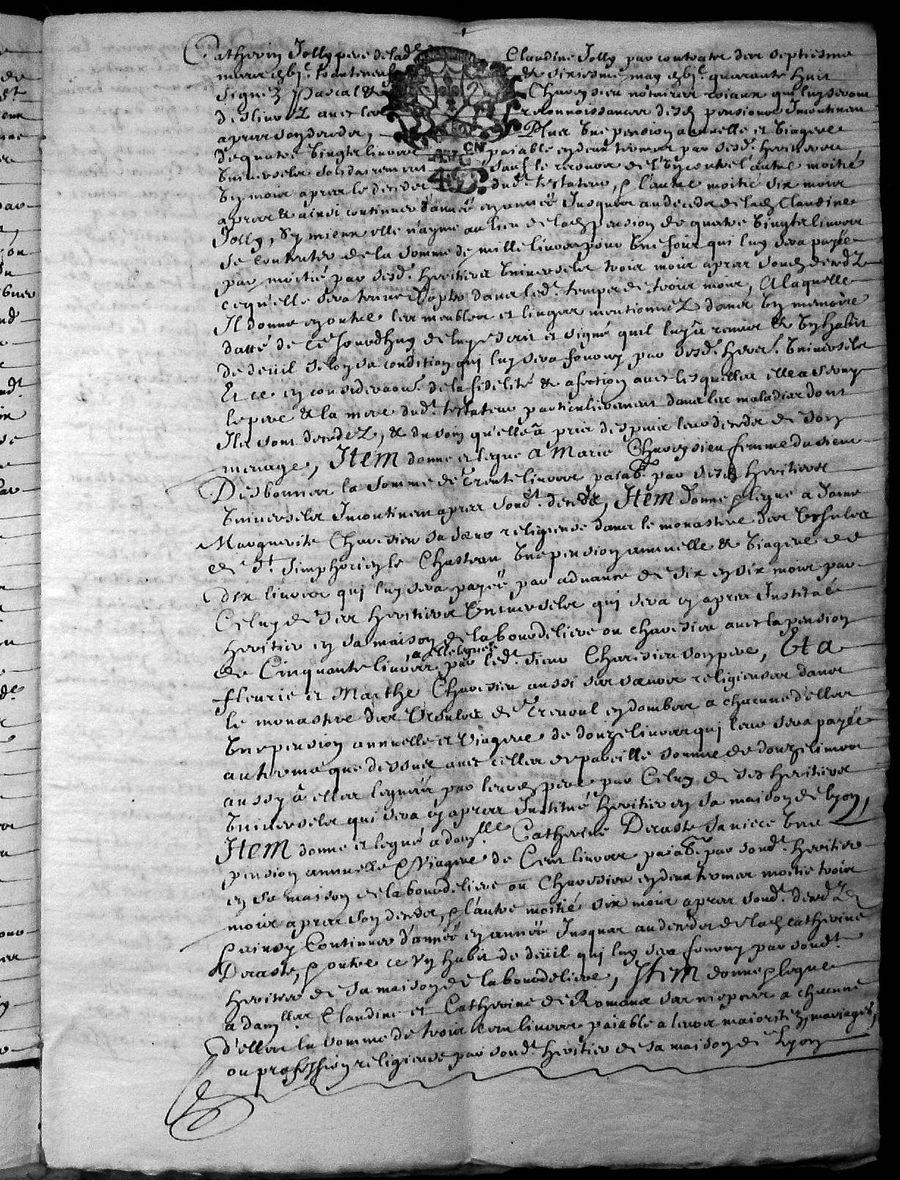 Catherin Jolly pere de lad.e Claudine Jolly par contratz des septiesme
de sixiesme may quarante huit
signez Pascal & Chavesieu notaires roiaux qui luy seront
deslivrez avec les reconnoissances desd. pensions Incontinen
apres son decedz, Plus une pension annuelle et viagere
de quatre vingts livres paiable en deux termes par sesd. heritiers
universels solidairement sauf le recours de l'un contre l'autre moitié
six mois apres le decedz dud. testateur, & l'autre moitié six mois
apres & ainsi continuer d'année en année Jusques au decedz de lad. Claudine
Jolly, sy mieux elle n'ayme au lieu de lad. pension de quatre vingts livres
se contenter de la somme de mille livres pour une fois qui luy sera payée
par moitié par sesd. heritiers universels trois mois apres sond. decedz
ce qu'elle sera tenue d'opter dans led. temps de trois mois, A laquelle
Il donne en outre les meubles et linges mentionnez dans un memoire
datté de ce Jourd'huy de luy escrit et signé qu'il luy a remis & un habit
de deuil selon sa condition qui luy sera fourny par sesd. herit.rs universels
Et ce en consideration de la fidelité & afection avec lesquelles elle a servy
le pere & la mere dud. testateur particulierement dans les maladies dont
Ils sont decedez, & du soin qu'elle a pris despuis leur decedz de son
menage, Item donne et legue a Marie Chavesieu femme du sieur
Desbonnes la somme de trente livres paiab. par sesd. heritiers
universels Incontinen apres sond. decedz, Item donne & legue a dame
Marguerite Chavesieu sa sœur religieuse dans le monastere des Ursules
de St. Simphorien le Chasteau une pension annuelle & viagere de
dix livres qui luy sera payée par advance de six en six mois par
Celuy de ses heritiers universels qui sera cy apres Institué
heritier en sa maison de la bourdeliere ou chavesieu avec la pension
de Cinquante livres a elle leguée par led. sieur Chavesieu son pere, Et a
fleurie et Marthe Chavesieu aussi ses sœurs religieuses dans
le monastere des Ursules de Trevoul en dombes a chacune d'elles
une pension annuelle et viagere de douze livres qui leur sera payée
au terme que dessus avec celles de pareille somme de douze livres
aussy a elles leguées par leurd. pere par Celuy de ses heritiers
universels qui sera cy apres Institué heritier en sa maison de Lyon,
Item donne et legue a dam.lle Catherine Deraste sa niece une
pension annuelle & viagere de Cent livres paiab. par sond. heritier
en sa maison de la bourdeliere ou Chavesieu en deux termes moitié trois
mois apres son decedz, & l'autre moitié six mois apres sond. decedz
& ainsy Continuer d'année en année Jusques au decedz de lad. catherine
Deraste, & outre ce un habit de deuil qui luy sera fourny par sond.
heritier de sa maison de la bourdeliere, Item donne & legue
a dam.lles Claudine et Catherine de Romans ses niepces a chacune
d'elles la somme de trois cens livres paiable a leurs majoritez, mariages,
ou proffession religieuse par sond. heritier de sa maison de Lyon